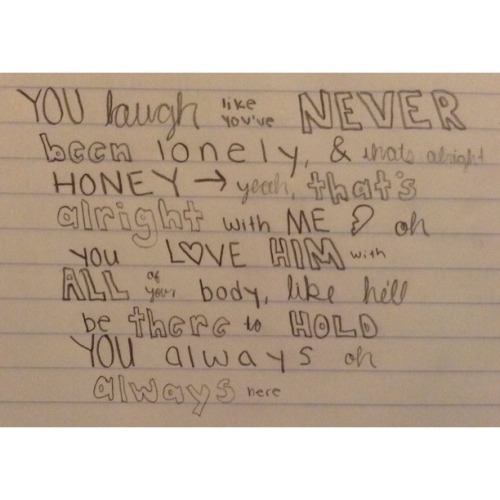 YOU laugh like you've NEVER
been lonely, & thats alright
HONEY → yeah, that's
alright with ME oh
you L♡VE HIM with
ALL of your body, like he'll
be there to HOLD
YOU always oh
always here